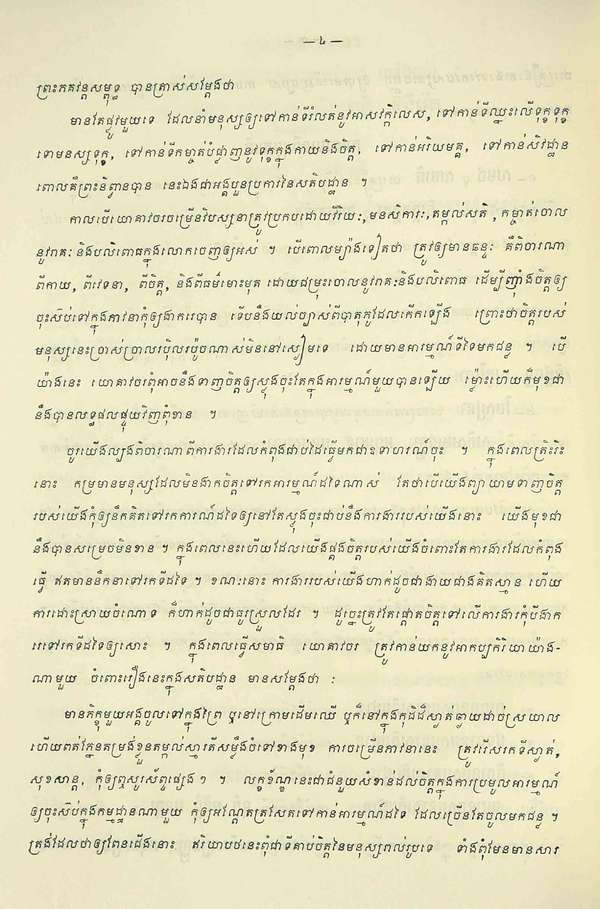 — ៤ —
ព្រះភគវន្តសម្ពុទ្ធ បានត្រាស់សម្ដែងថា
មានតែផ្លូវមួយទេ ដែលនាំមនុស្សឲ្យទៅកាន់ទីរំលត់នូវអាសវក្កិលេស, ទៅកាន់ទីឈ្នះលើទុក្ខទុក្ខ
ទោមនស្សទុក្ខ, ទៅកាន់ទីកម្ចាត់បំផ្លាញនូវទុក្ខក្នុងកាយនិងចិត្ត, ទៅកាន់អរិយមគ្គ, ទៅកាន់សិវដ្ឋាន
ពោលគឺព្រះនិព្វានបាន នេះឯងជាអង្គបួនប្រការនៃសតិបដ្ឋាន ។
កាលបើយោគាវចរចម្រើនវិបស្សនាត្រូវប្រកបដោយវីរិយៈ, មនសិការៈ, តម្កល់សតិ, កម្ចាត់ចោល
នូវរាគៈនិងបលិពោធក្នុងលោកចេញឲ្យអស់ ។ បើពោលម្យ៉ាងទៀតថា ត្រូវឲ្យមានឆន្ទៈ គឺពិចារណា
ពីកាយ, ពីវេទនា, ពីចិត្ត, និងពីធម៌មោះមុត ដោយជម្រុះចោលនូវរាគៈនិងបលិពោធ ដើម្បីញ៉ាំងចិត្តឲ្យ
ចុះស៊ប់ទៅក្នុងភាវនាកុំឲ្យងាករេបាន ទើបនឹងយល់ច្បាស់ពីបាតុភូដែលកើតឡើង ព្រោះថាចិត្តរបស់
មនុស្សនេះច្រាស់ច្រាលរប៉ិលរប៉ូចណាស់មិននៅស្ងៀមទេ ដោយមានអារម្មណ៍ទីទៃមកជន្លូ ។ បើ
យ៉ាងនេះ យោគាវចរពុំអាចនឹងទាញចិត្តឲ្យស្ដូងចុះតែក្នុងអារម្មណ៍មួយបានឡើយ ម្ល៉ោះហើយក៏មុខជា
នឹងបានលទ្ធផលផ្ទុយវិញពុំខាន ។
ចូរយើងល្បងពិចារណាពីការងារដែលកំពុងជាប់ដៃធ្វើមកជាឧទាហរណ៍ចុះ ។ ក្នុងពេលត្រិះរិះ
នោះ កម្រមានមនុស្សដែលមិនងាកចិត្តទៅរកអារម្មណ៍ដទៃណាស់ តែថាបើយើងព្យាយាមទាញចិត្ត
របស់យើងកុំឲ្យនឹកគិតទៅរកការណ៍ដទៃឲ្យនៅតែស្ដូងចុះជាប់នឹងការងាររបស់យើងនោះ យើងមុខជា
នឹងបានសម្រេចមិនខាន ។ ក្នុងពេលនេះហើយដែលយើងផ្គងចិត្តរបស់យើងចំពោះតែការងារដែលកំពុង
ធ្វើ ឥតមាននឹកនាទៅរកទីដទៃ ។ ខណៈនោះ ការងាររបស់យើងហាក់ដូចជាងាយជាងគិតស្មាន ហើយ
ការដោះស្រាយចំណោទ ក៏ហាក់ដូចជាធូរស្រួលដែរ ។ ដូច្នេះត្រូវតែផ្តោតចិត្តទៅលើការងារកុំបីងាក
រេទៅរកទីដទៃឲ្យសោះ ។ ក្នុងពេលធ្វើសមាធិ យោគាវចរ ត្រូវកាន់យកនូវអាកប្បកិរិយាយ៉ាង-
ណាមួយ ចំពោះរឿងនេះក្នុងសតិបដ្ឋាន មានសម្ដែងថា :
មានភិក្ខុមួយអង្គចូលទៅក្នុងព្រៃ ឬនៅក្រោមដើមឈើ ឬក៏នៅក្នុងកុដិដ៏ស្ងាត់ឆ្ងាយដាច់ស្រយាល
ហើយពត់ភ្នែនតម្រង់ខ្លួនតម្កល់ស្មារតីសម្លឹងចំទៅខាងមុខ ការចម្រើនភាវនានេះ ត្រូវរើសរកទីស្ងាត់,
សុខសាន្ត, កុំឲ្យឮសូរស័ព្ទផ្សេង ៗ ។ លក្ខខ័ណ្ឌនេះជាជំនួយសំខាន់ដល់ចិត្តក្នុងការប្រមូលអារម្មណ៍
ឲ្យចុះស៊ប់ក្នុងកម្មដ្ឋានណាមួយ កុំឲ្យអណ្ដែតត្រសែតទៅកាន់អារម្មណ៍ដទៃ ដែលច្រើនតែចូលមកជន្លូ ។
ត្រង់ដែលថាឲ្យពែនជើងនោះ ឥរិយាបថនេះពុំជាទីគាប់ចិត្តនៃមនុស្សរាល់រូបទេ ទាំងពុំមែនមានសារ